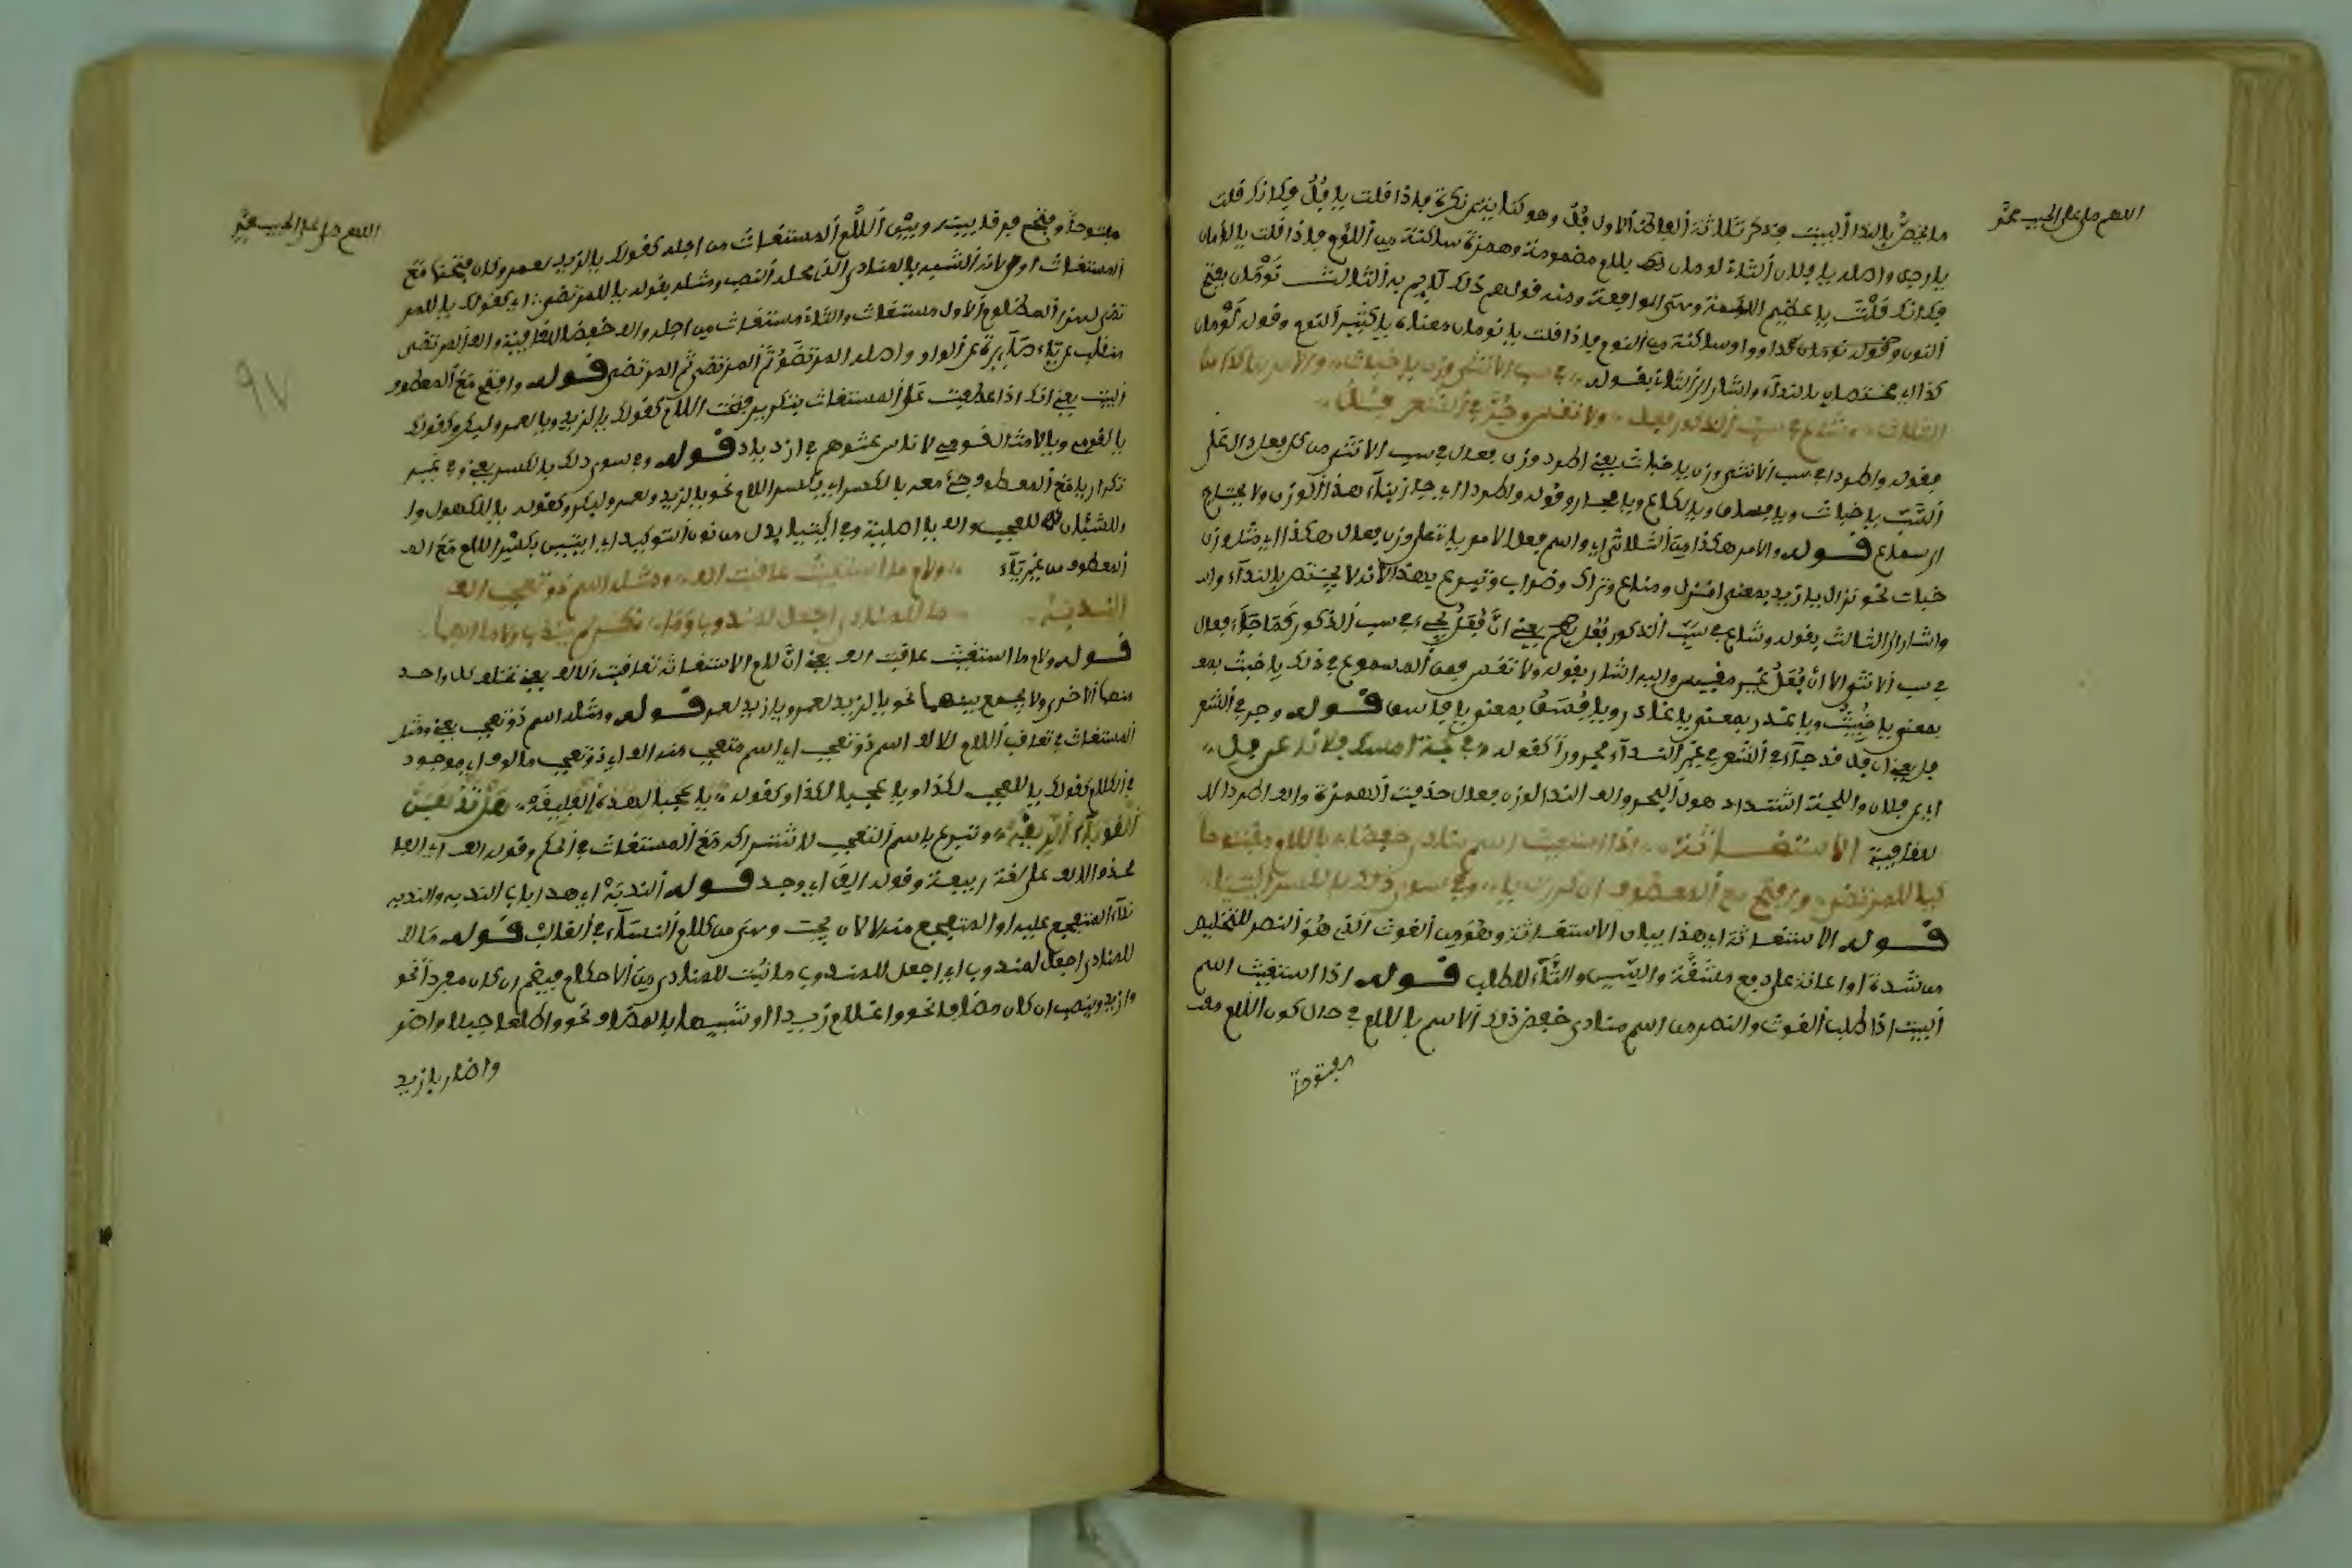 اللهم صل على الحبيب محمد
ما يختص بالندا البيت فذكر ثلاثة الفاظ الاول فل وهو كناية عن نكرة فاذا قلت يا فل فكانك قلت
يا رجل واصله يا فلان الثاني لومان بلام مضمومة وهمزة ساكنة من اللؤم فاذا قلت يا لؤمان
فكانك قلت يا عظيم اللئمة ومنه قولهم ذلك لئيم به الثالث نومان بفتح
النون وقوله نومان واوا ساكنة من النوم فاذا قلت يا نومان معناه يا كثير النوم وقوله لومان
كذا اي مختصان بالنداء واشار الى الثاني بقوله في سب الانثى وزن يا خباث والامر هكذا من
الثلاثي وشاع في سب الذكور فعل ولا تقس وجر في الشعر فل
فقوله واطردا في سب الانثى وزن يا خباث يعني اطرد وزن فعال في سب الانثى من كل فعل دال على
السب يا خباث ويا فساق ويا لكاع ويا فجار وقوله واطردا اي جاز بناء هذا الوزن ولا يحتاج
الى سماع قوله والامر هكذا من الثلاثي اي واسم فعل الامر ياتي على وزن فعال هكذا اي مثل وزن
خباث نحو نزال يا زيد بمعنى انزل ومناع وتراك وضراب وتبرع بهذا لانه لا يختص بالنداء وال
واشار الى الثالث بقوله وشاع في سب الذكور فعل يعني ان فعل يجيء في سب الذكور كما جاء فعال
في سب الانثى الا ان فعل غير مقيس واليه اشار بقوله ولا تقس فمن المسموع في ذلك يا خبث
بمعنى يا خبيث ويا غدر بمعنى يا غادر ويا فسق بمعنى يا فاسق قوله وجر في الشعر
فل يعني ان فل قد جاء في الشعر في غير النداء مجرورا كقوله في لجة امسك فلانا عن فل
اي عن فلان واللجة اشتداد هول البحر والف الندا لوزن فعال حذفت الهمزة والف اطردا لا
للقافية الاستغاثة اذا استغيث اسم منادى خفضا باللام مفتوحا
كيا للمرتضى وافتح مع المعطوف ان كررت يا وفي سوى ذلك بالكسر ائتيا
قوله الاستغاثة اي هذا بيان الاستغاثة وهو من الغوث الذي هو النصر للتخليص
من شدة او اعانة على دفع مشقة والسين والتاء للطلب قوله اذا استغيث اسم
البيت اذا طلب الغوث والنصر من اسم منادى خفض ذلك الاسم باللام في حال كون اللام
مفتوحا
اللهم صل على الحبيب محمد
٩٧
مفتوحا وفتح فرقا بينه وبين اللام المستغاث من اجله كقولك يا لزيد لعمرو وكان فتحها مع
المستغاث اولى لانه الشبيه بالمنادى الذي محله النصب ومثله بقوله يا للمرتضى اي كقولك يا للمر
تضى لهذا المظلوم الاول مستغاث والثاني مستغاث من اجله والف خفضا للقافية والف المرتضى
منقلبة عن ياء صائرة عن الواو واصله المرتضو ثم المرتضي ثم المرتضى قوله وافتح مع المعطوف
البيت يعني انك اذا عطفت على المستغاث بتكرير فتحت اللام كقولك يا لزيد ويا لعمرو لبكر وكقولك
يا لقومي ويا لامثال قومي لاناس عتوهم في ازدياد قوله وفي سوى ذلك بالكسر يعني وفي غير
تكرار يا مع المعطوف جيء معه بالكسر اي بكسر اللام نحو يا لزيد ولعمرو لبكر وكقوله يا للكهول و
للشبان للعجب والف يا اصلية وفي ائتيا بدل من نون التوكيد اي ائتين بكسر اللام مع ال
المعطوف من غير ياء ولام ما استغيث عاقبت الف ومثله اسم ذو تعجب الف
الندبة ما للمنادى اجعل لمندوب وما نكر لم يندب ولا ما ابهما
قوله ولام ما استغيث عاقبت الف يعني ان لام الاستغاثة تعاقبت الالف يعني تخلف كل واحد
منهما الاخرى ولا يجمع بينهما نحو يا لزيد لعمرو ويا زيدا لعمرو قوله ومثله اسم ذو تعجب يعني ومثل
المستغاث في تعاقب اللام للالف اسم ذو تعجب اي اسم متعجب منه الف اي ذو تعجب مالوف اي موجود
في الكلام كقولك يا للعجب لكذا ويا عجبا لكذا وكقوله يا عجبا لهذه الفليقة هل تذهبن
القوباء الريقة وتبرع باسم التعجب لاشتراكه مع المستغاث في الحكم وقوله الف اي الفا
بحذف الالف على لغة ربيعة وقوله الف اي وجد قوله الندبة اي هذا باب الندبة والندبة
نداء المتفجع عليه او المتوجع منه وهي من كلام النساء في الغالب قوله ما لل
للمنادى اجعل لمندوب اي اجعل للمندوب ما ثبت للمنادى من الاحكام فيضم ان كان مفردا نحو
وا زيد وينصب ان كان مضافا نحو وا غلام زيد او شبيها بالمضاف نحو وا طالعا جبلا واضر
واضاربا زيد